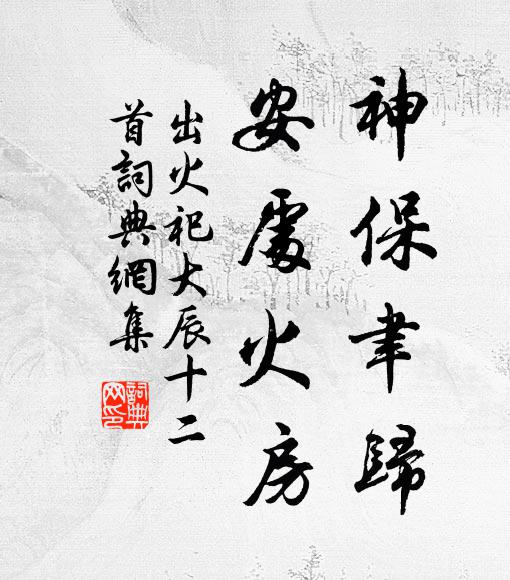 神保聿歸
安處火房
出火祀大辰十二
首詞典網集
詞典
網印